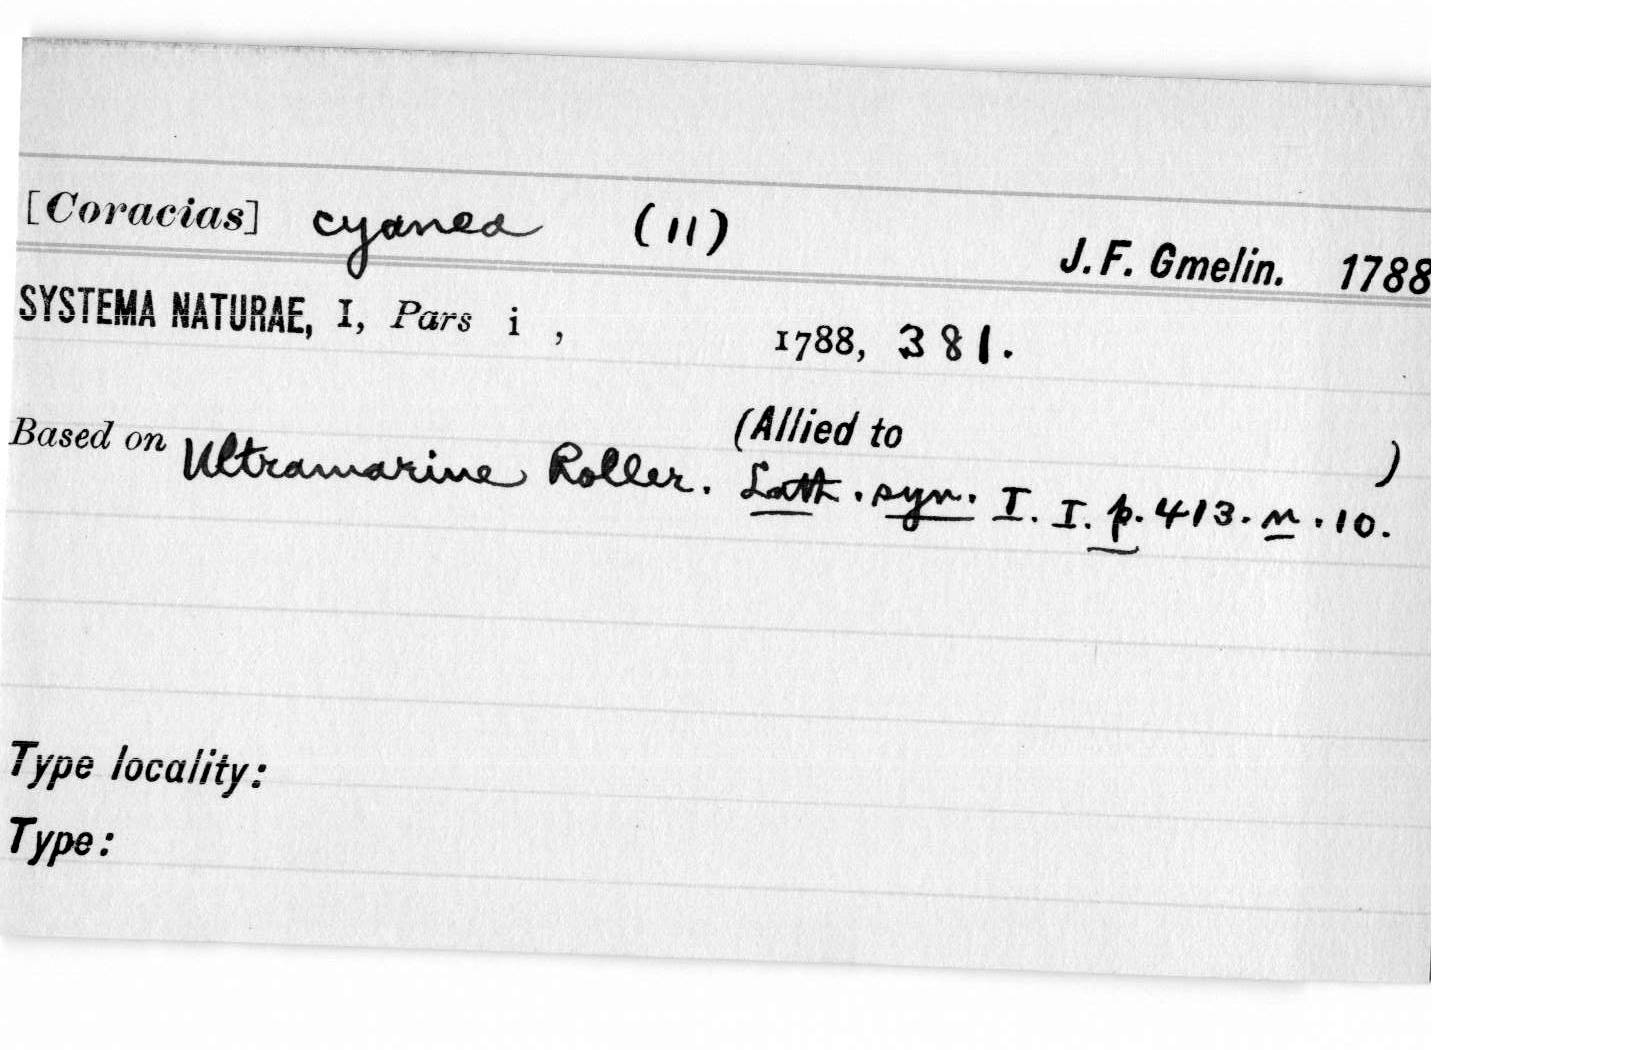 [Coracias] cyanea (11)
J. F. Gmelin. 1788
SYSTEMA NATURAE, I, Pars i , 1788, 381.
(Allied to )
Based on Ultramarine Roller. Lath. syn. I. I. p. 413. n. 10.
Type locality:
Type: